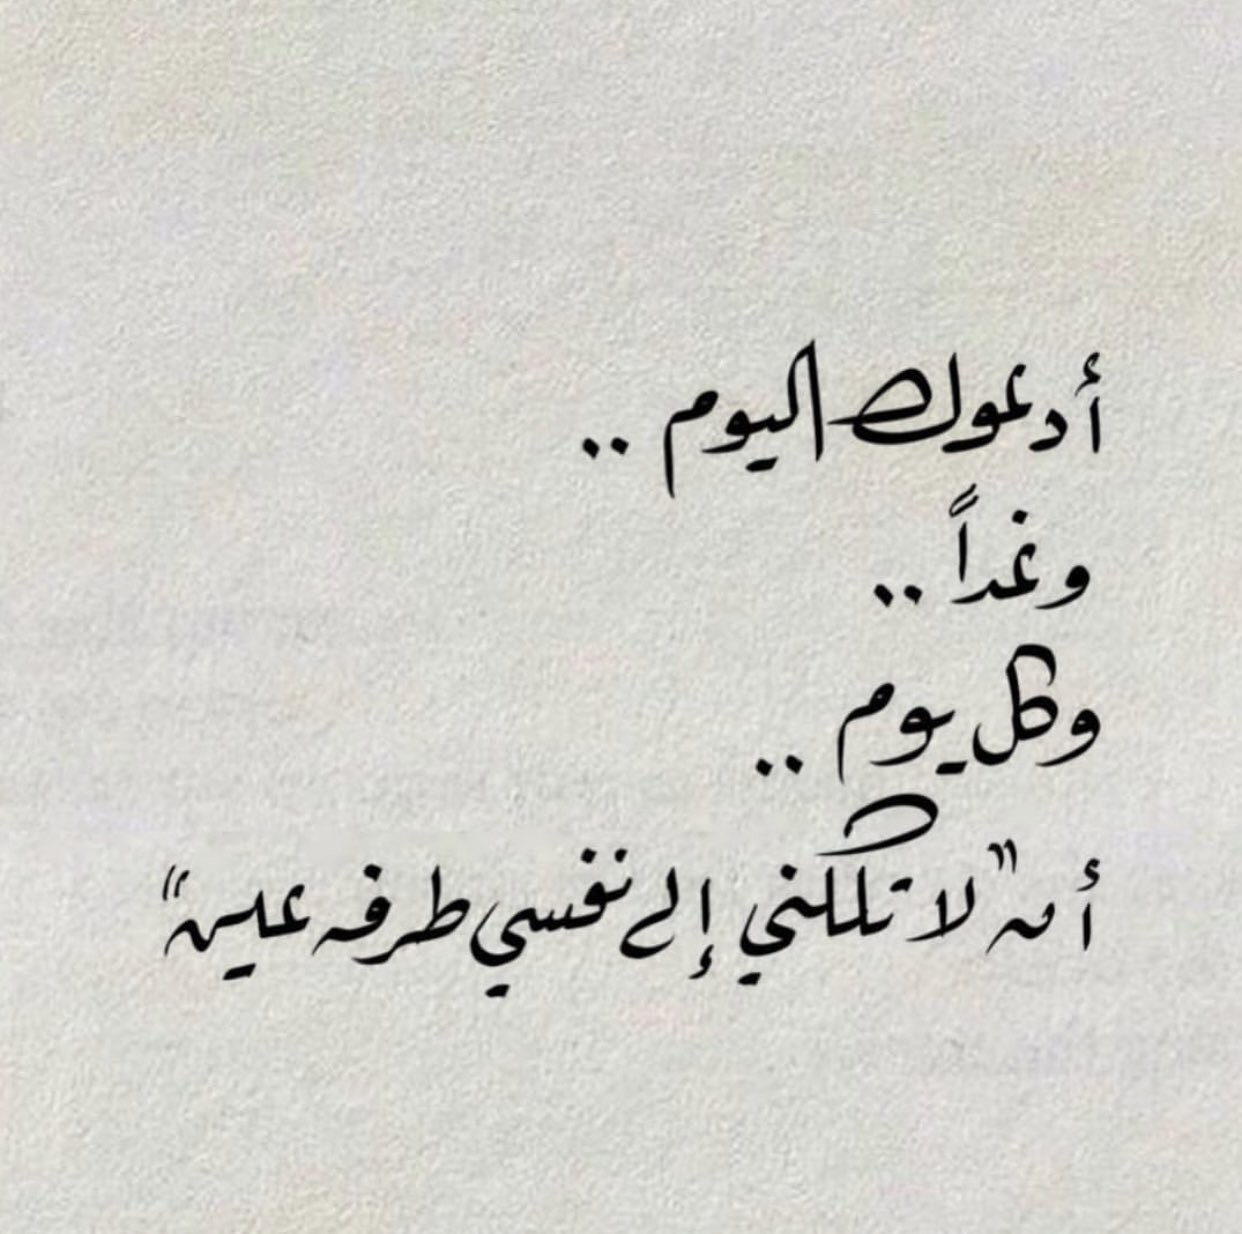 أدعوك اليوم ..
وغداً ..
وكل يوم ..
أن "لا تكلني إلى نفسي طرفه عين"